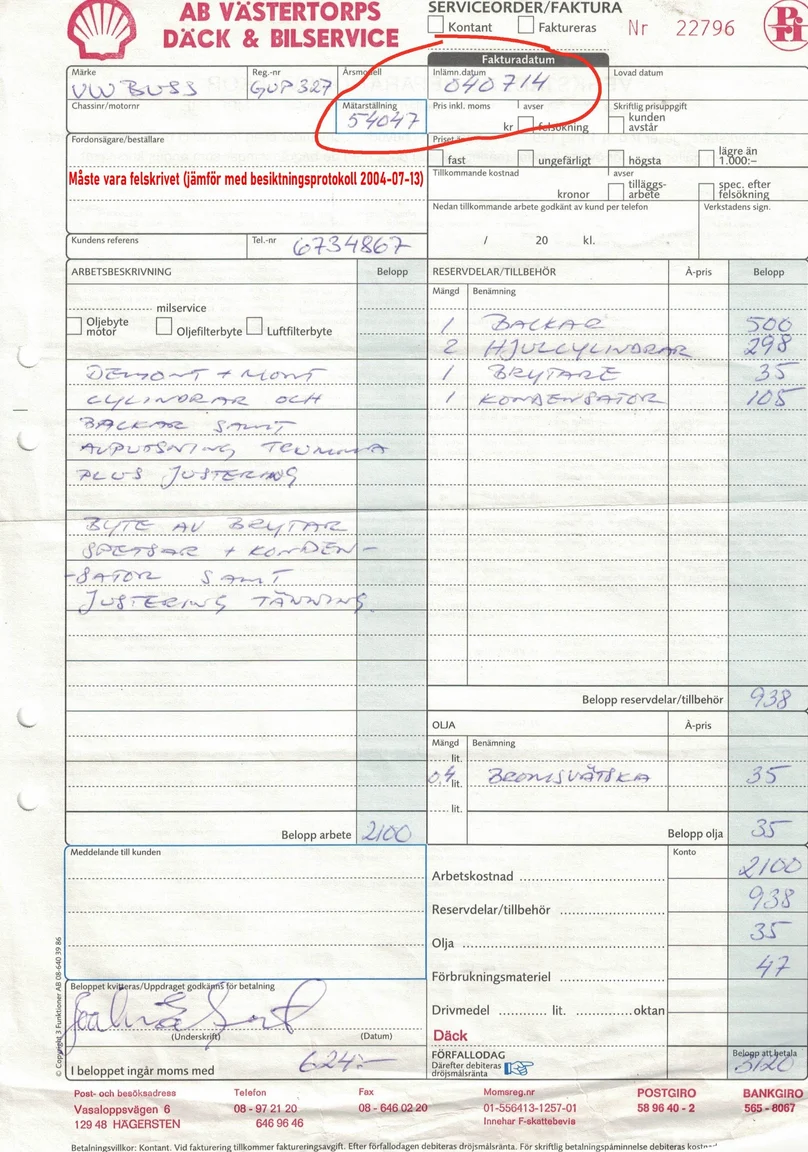 AB VÄSTERTORPS
DÄCK & BILSERVICE
SERVICEORDER/FAKTURA
Kontant Faktureras
Nr 22796
Fakturadatum
Märke
VW BUSS
Reg.-nr
GUP 327
Årsmodell
Inlämn.datum
040714
Lovad datum
Chassinr/motornr
Mätarställning
54047
Pris inkl. moms avser
kr felsökning
Skriftlig prisuppgift
kunden avstår
Fordonsägare/beställare
Måste vara felskrivet (jämför med besiktningsprotokoll 2004-07-13)
fast ungefärligt högsta lägre än 1.000:–
Tillkommande kostnad avser
kronor tilläggs- arbete spec. efter felsökning
Nedan tillkommande arbete godkänt av kund per telefon
Verkstadens sign.
/ 20 kl.
Kundens referens
Tel.-nr 6734867
ARBETSBESKRIVNING Belopp
milservice
Oljebyte motor Oljefilterbyte Luftfilterbyte
DEMONT + MONT
CYLINDRAR OCH
BACKAR SAMT
AVPUTSNING TRUMMA
PLUS JUSTERING
BYTE AV BRYTAR
SPETSAR + KONDEN-
-SATOR SAMT
JUSTERING TÄNNING
Belopp arbete 2100
RESERVDELAR/TILLBEHÖR À-pris Belopp
Mängd Benämning
1 BACKAR 500
2 HJULCYLINDRAR 298
1 BRYTARE 35
1 KONDENSATOR 105
Belopp reservdelar/tillbehör 938
OLJA À-pris
Mängd Benämning
lit.
0,4 lit. BROMSVÄTSKA 35
lit.
Belopp olja 35
Meddelande till kunden
Konto
Arbetskostnad 2100
Reservdelar/tillbehör 938
Olja 35
Förbrukningsmateriel 47
Drivmedel lit. oktan
Däck
Beloppet kvitteras/Uppdraget godkänns för betalning
(Underskrift) (Datum)
I beloppet ingår moms med 624:-
FÖRFALLODAG
Därefter debiteras
dröjsmålsränta
Belopp att betala
3120
© Copyright 3 Funktioner AB 08-640 39 86
Post- och besöksadress Telefon Fax Momsreg.nr POSTGIRO BANKGIRO
Vasaloppsvägen 6 08 - 97 21 20 08 - 646 02 20 01-556413-1257-01 58 96 40 - 2 565 - 8067
129 48 HÄGERSTEN 646 96 46 Innehar F-skattebevis
Betalningsvillkor: Kontant. Vid fakturering tillkommer faktureringsavgift. Efter förfallodagen debiteras dröjsmålsränta. För skriftlig betalningspåminnelse debiteras